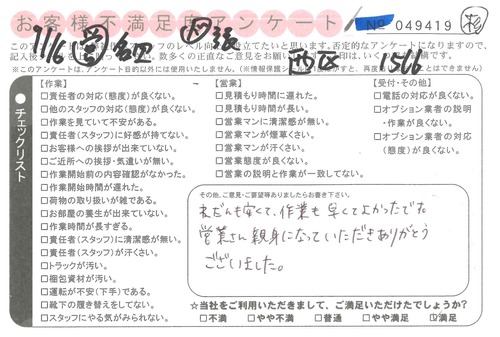 お客様不満足度アンケート
No 049419 杉
11/6
西区 15/6
※このアンケートは、アンケート目的以外には使用いたしません。
チェックリスト
【作業】
□責任者の対応(態度)が良くない。
□他のスタッフの対応(態度)が良くない。
□作業を見ていて不安がある。
□責任者(スタッフ)に好感が持てない。
□お客様への挨拶が出来ていない。
□ご近所への挨拶・気遣いが無い。
□作業開始前の内容確認がなかった。
□作業開始時間が遅れた。
□荷物の取り扱いが雑である。
□お部屋の養生が出来ていない。
□作業時間が長すぎる。
□責任者(スタッフ)に清潔感が無い。
□責任者(スタッフ)が汗くさい。
□トラックが汚い。
□梱包資材が汚い。
□運転が不安(下手)である。
□靴下の履き替えをしてない。
□スタッフにやる気がみられない。
【営業】
□見積もり時間に遅れた。
□見積もり時間が長い。
□営業マンに清潔感が無い。
□営業マンが煙草くさい。
□営業マンが汗くさい。
□営業態度が良くない。
□営業の説明と作業が一致してない。
【受付・その他】
□電話の対応が良くない。
□オプション業者の説明
・作業が良くない。
□オプション業者の対応
(態度)が良くない。
その他、ご意見・ご要望等ありましたらお書き下さい。
ねだんも安くて、作業も早くてよかったです
営業さん親身になっていただきありがとう
ございました。
☆当社をご利用いただきまして、ご満足いただけたでしょうか?
□不満 □やや不満 □普通 □やや満足 ☑満足